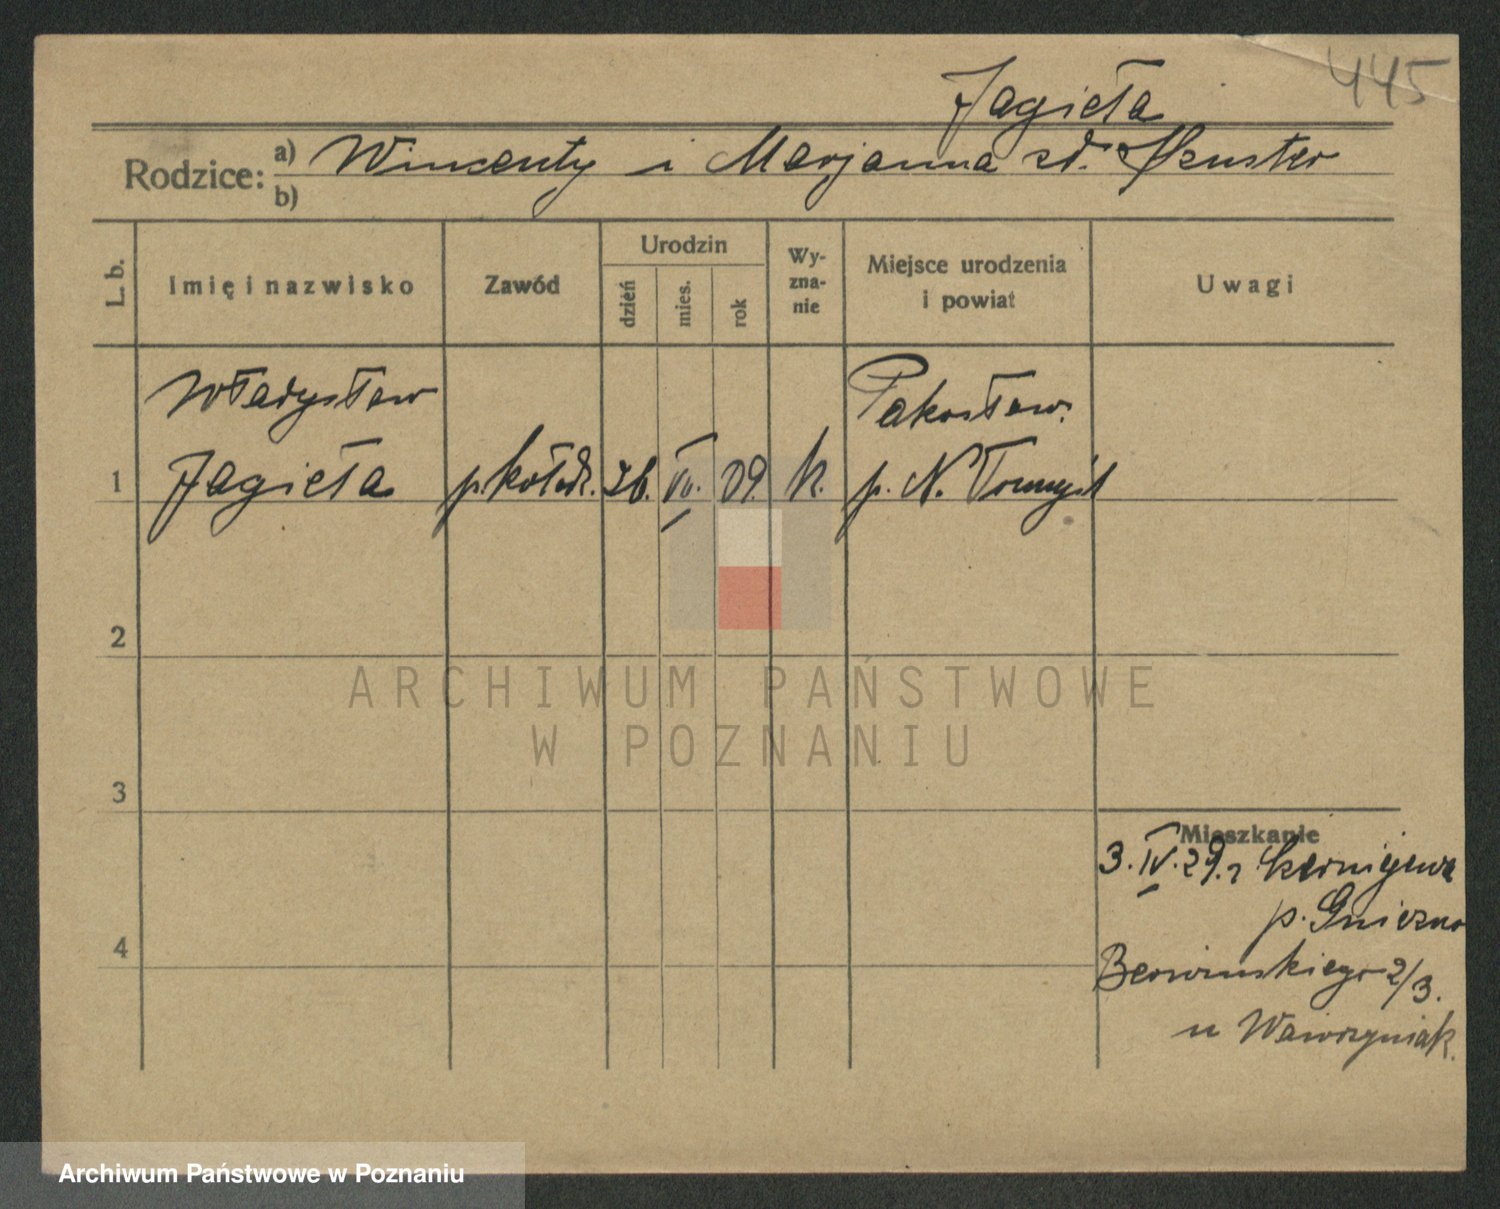 445
Jagieła
Rodzice: a) Wincenty i Marjanna zd.
b)
L. b.
Imię i nazwisko
Zawód
Urodzin
dzień
mies.
rok
Wy-
zna-
nie
Miejsce urodzenia
i powiat
Uwagi
Władysław
Pakosław.
1 Jagieła p. kołodz. 26. VI. 09. k. p. N. Tomyśl
2
3
4
ARCHIWUM PAŃSTWOWE
W POZNANIU
Mieszkanie
3.IV.29. z
p. Gniezno
Berwińskiego 2/3.
u Wawrzyniak.
Archiwum Państwowe w Poznaniu